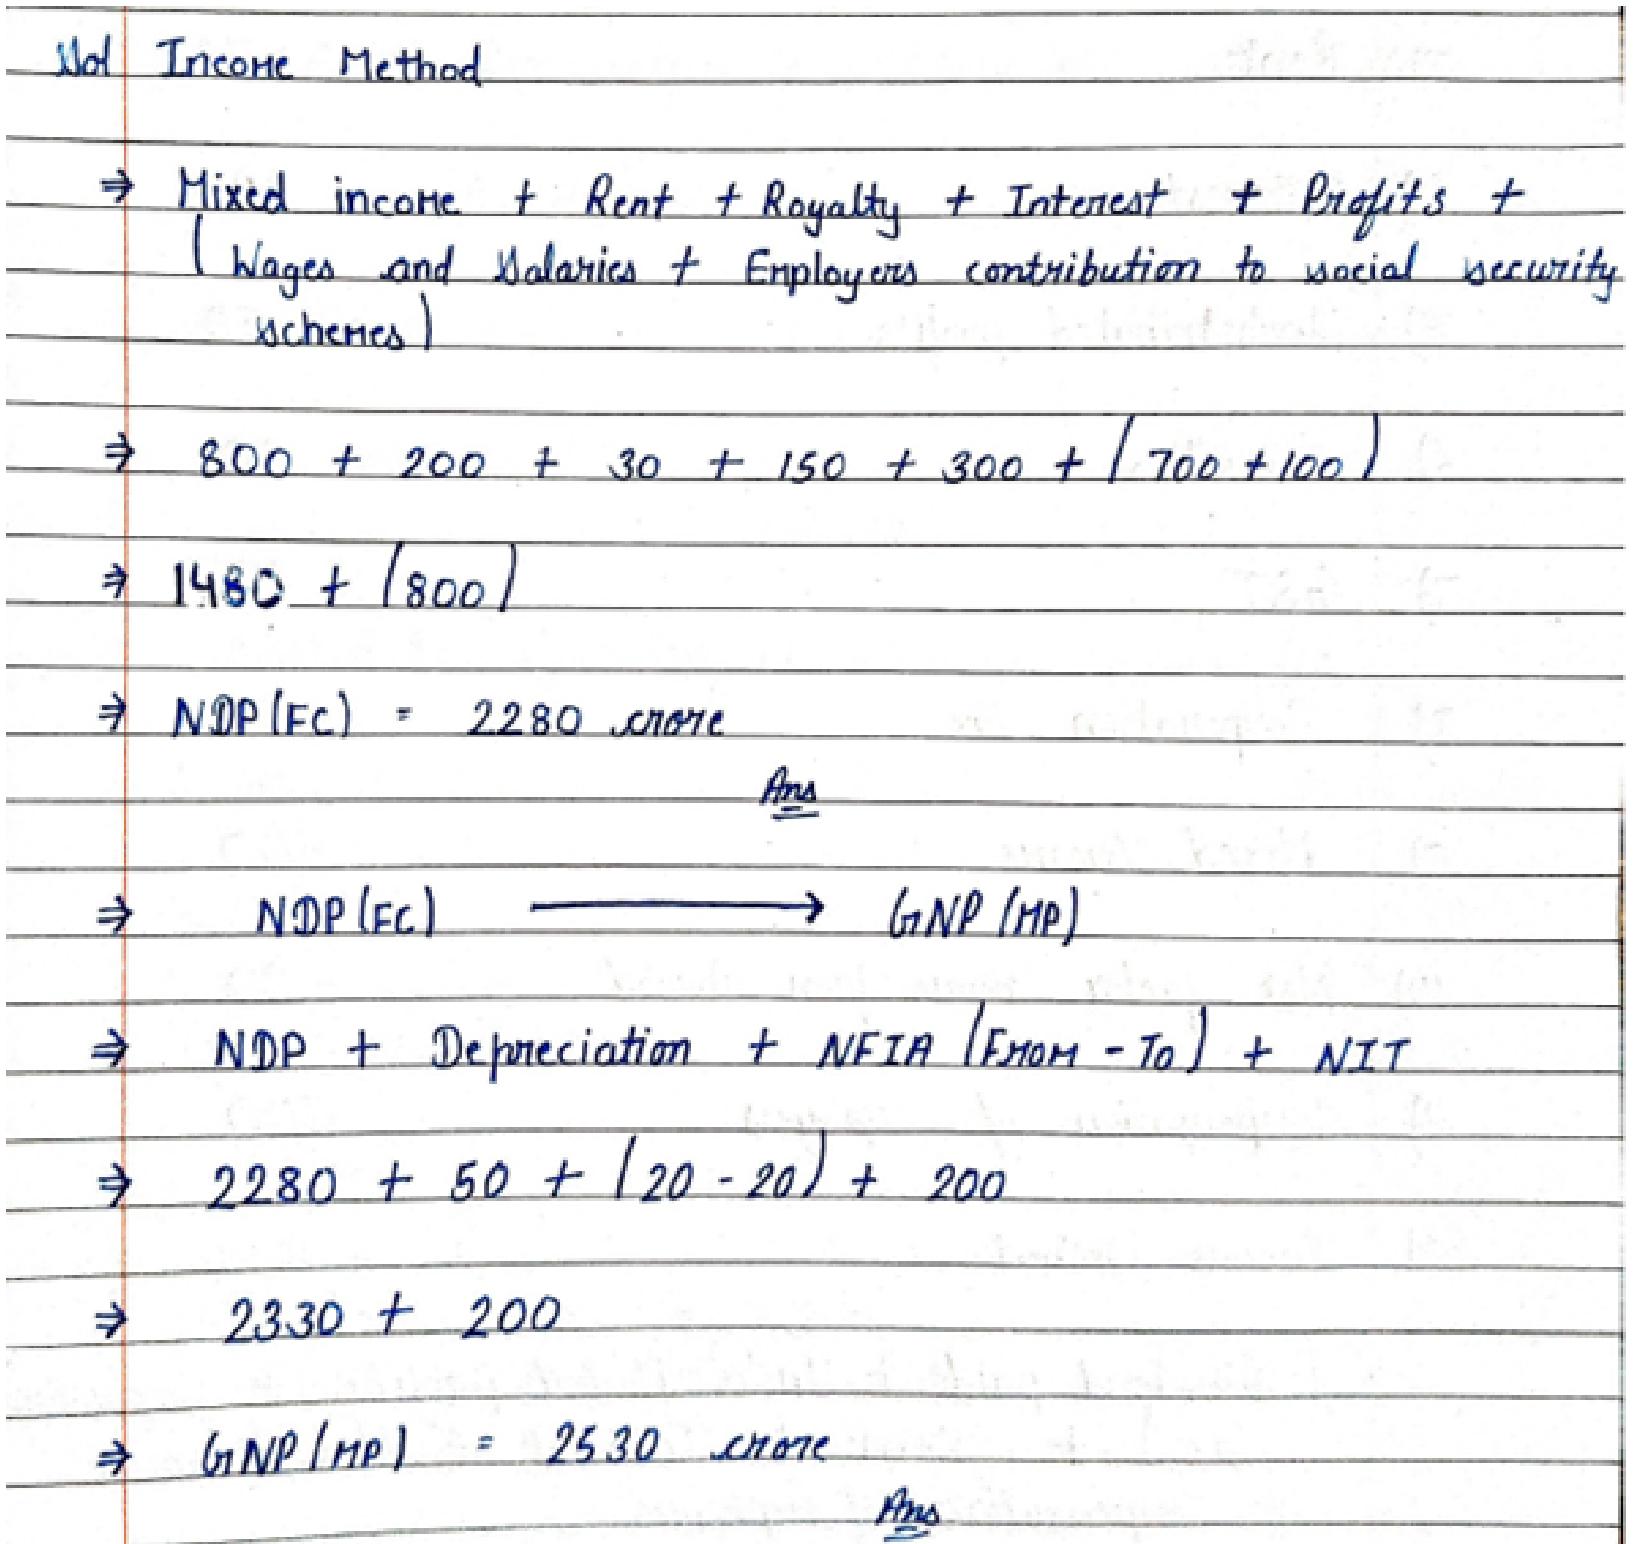 Sol Income Method
⇒ Mixed income + Rent + Royalty + Interest + Profits +
(Wages and Salaries + Employers contribution to social security
schemes)
⇒ 800 + 200 + 30 + 150 + 300 + (700 + 100)
⇒ 1480 + (800)
⇒ NDP(FC) = 2280 crore
Ans
⇒ NDP(FC) → GNP(MP)
⇒ NDP + Depreciation + NFIA (From - To) + NIT
⇒ 2280 + 50 + (20 - 20) + 200
⇒ 2330 + 200
⇒ GNP(MP) = 2530 crore
Ans